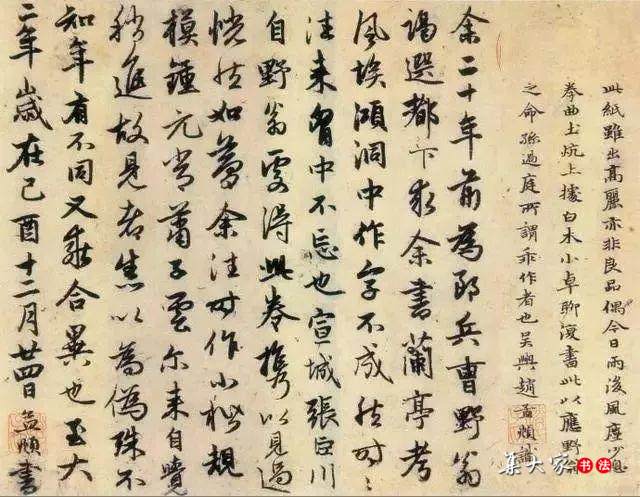 此紙雖出高麗亦非良品偶今日雨後風塵少息
拳曲土炕上據白木小卓聊復書此以應野翁
之命孫過庭所謂乖作者也吳興趙孟頫識
余二十年前為郎兵曹野翁
謁選都下求余書蘭亭考
風埃澒洞中作字不成然時〻
往來胷中不忘也宣城張巨川
自野翁處得此卷攜以見過
恍然如夢余往時作小楷規
模鍾元常蕭子雲尔來自覺
稍進故見者悉以為偽殊不
知年有不同又乖合異也至大
二年歲在己酉十二月廿四日孟頫書
集大家書法